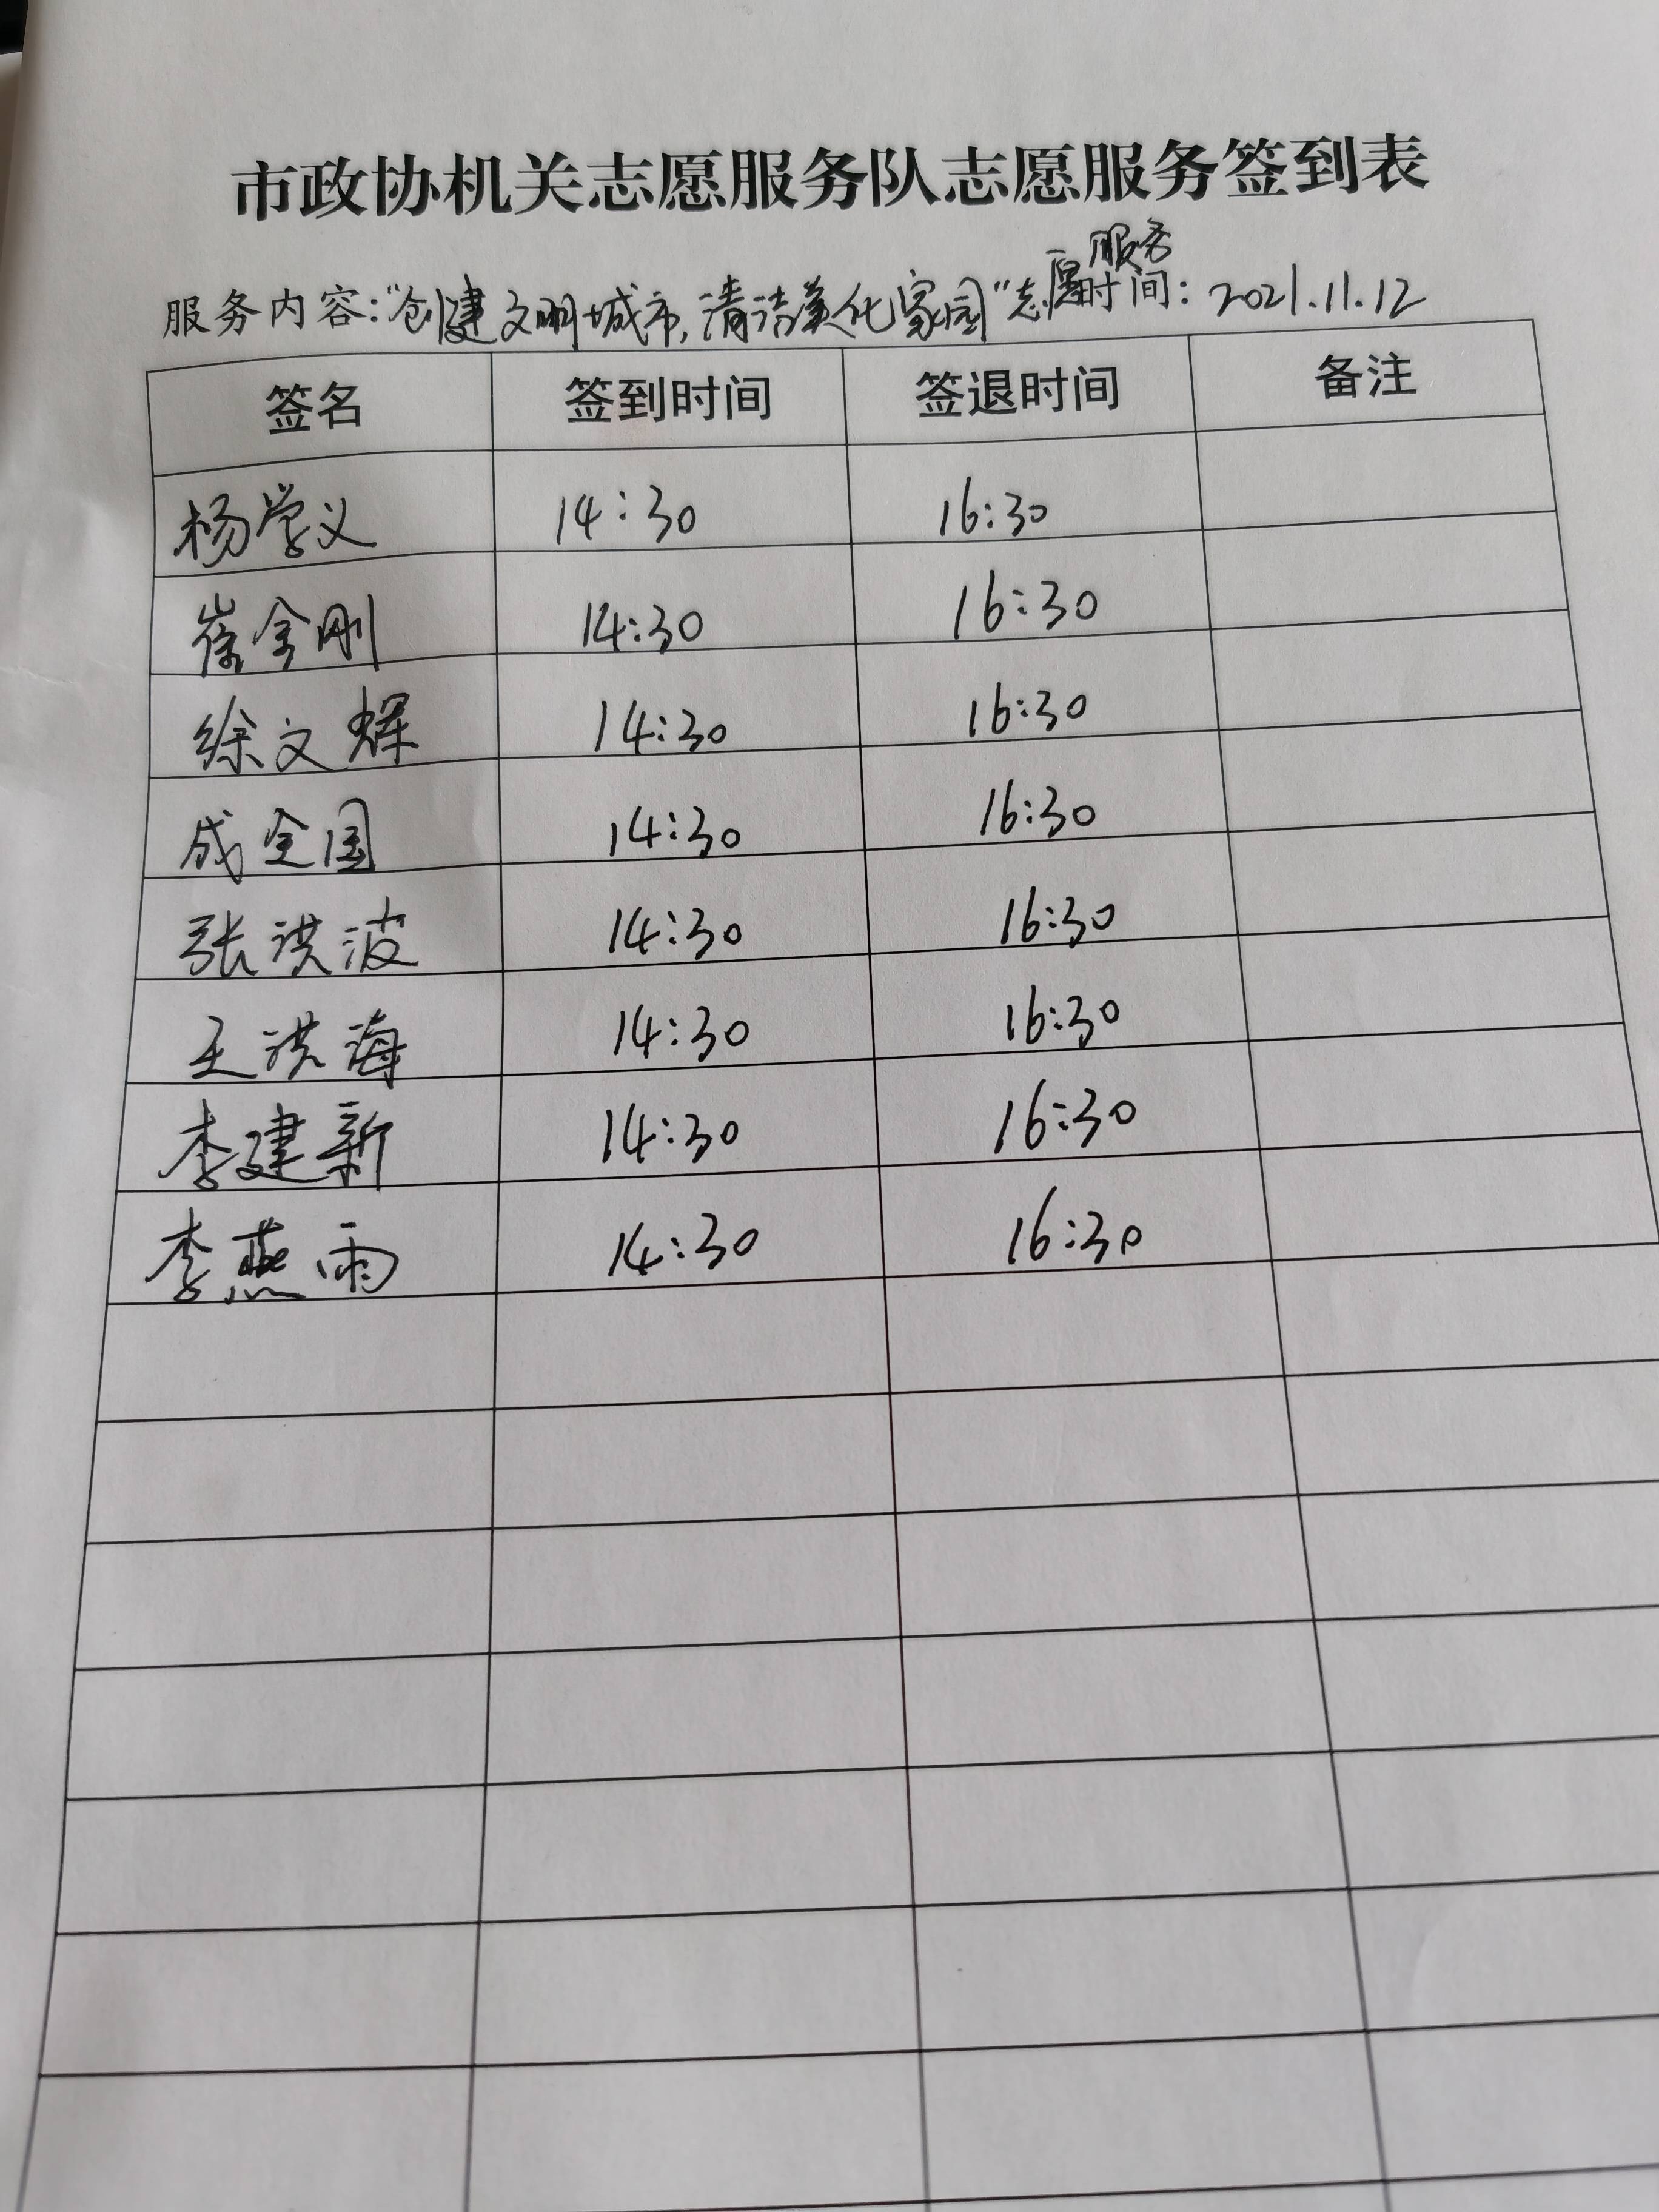 市政协机关志愿服务队志愿服务签到表
服务内容:“创建文明城市,清洁美化家园”志愿服务 时间: 2021.11.12
签名 签到时间 签退时间 备注
杨学义 14:30 16:30
崔金刚 14:30 16:30
徐文辉 14:30 16:30
成全国 14:30 16:30
张洪波 14:30 16:30
王洪海 14:30 16:30
李建新 14:30 16:30
李燕雨 14:30 16:30